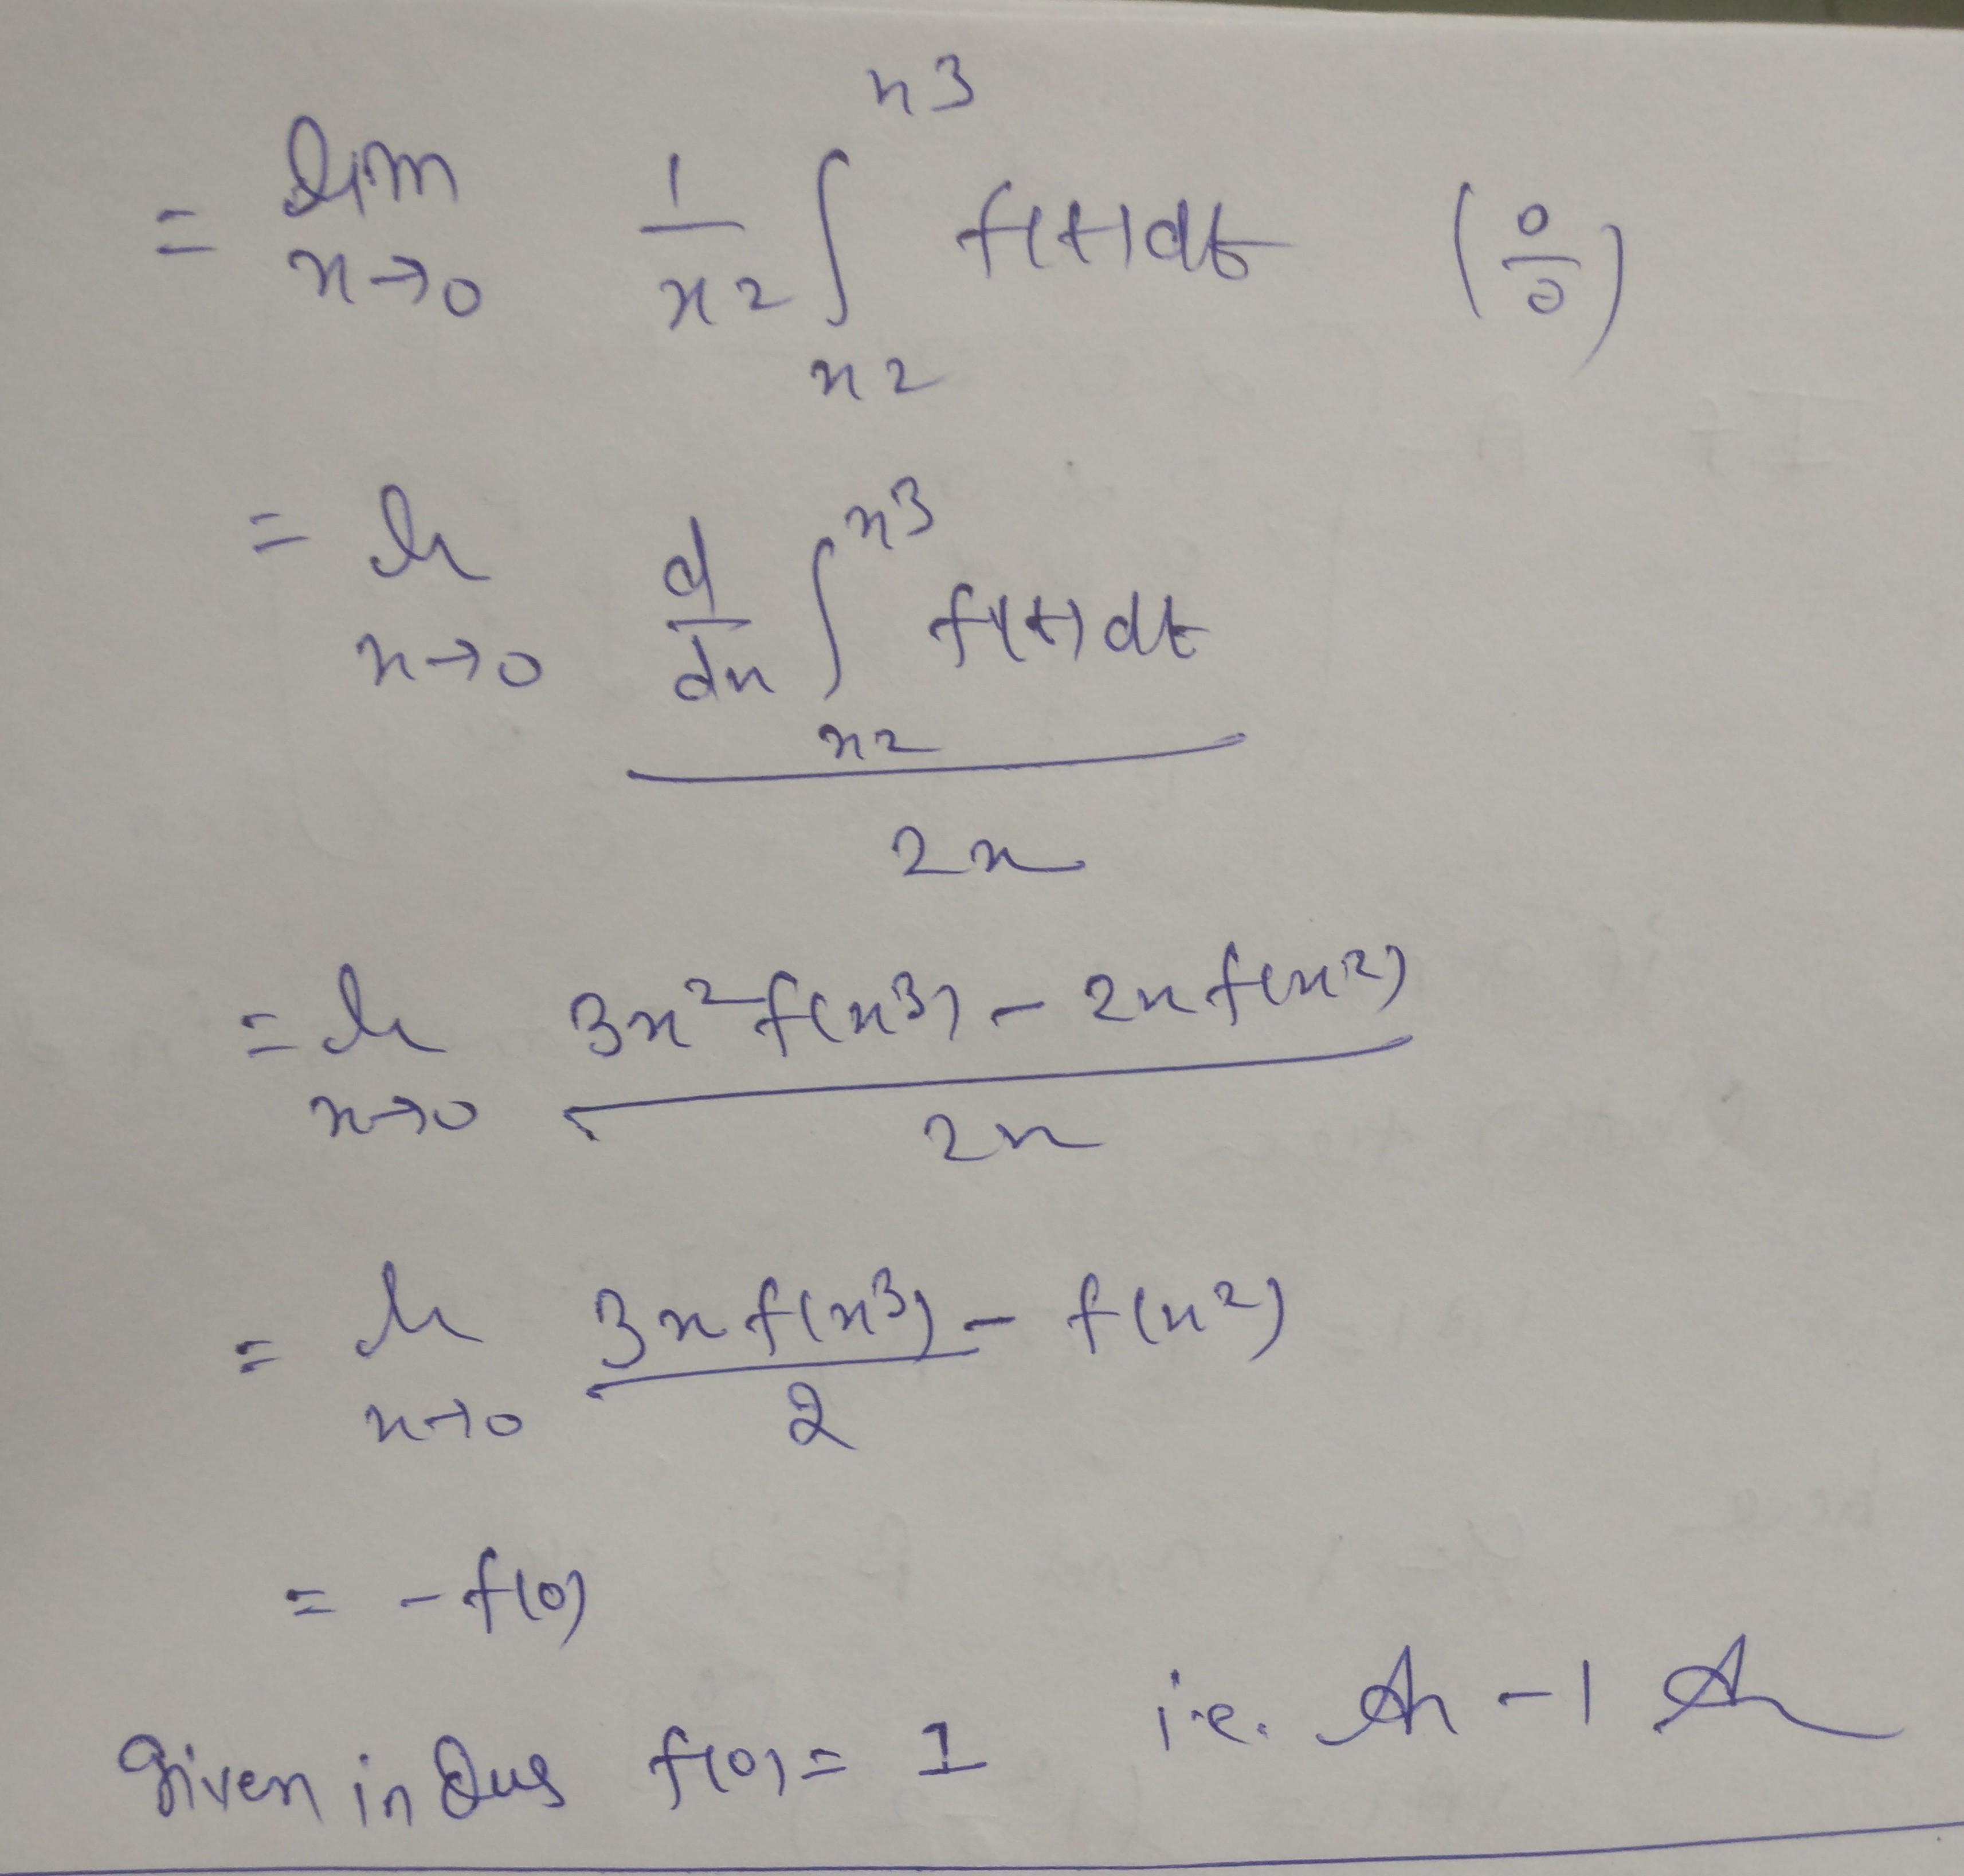 = lim x→0 1/x² ∫_{x²}^{x³} f(t)dt (0/0)
= lt x→0 (d/dx ∫_{x²}^{x³} f(t)dt) / 2x
= lt x→0 (3x² f(x³) - 2x f(x²)) / 2x
= lt x→0 3x f(x³)/2 - f(x²)
= - f(0)
Given in Qus f(0) = 1 i.e. -1